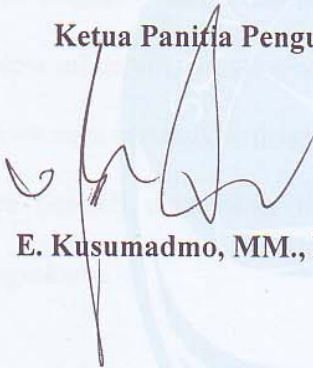 Ketua Panitia Pengu
E. Kusumadmo, MM.,